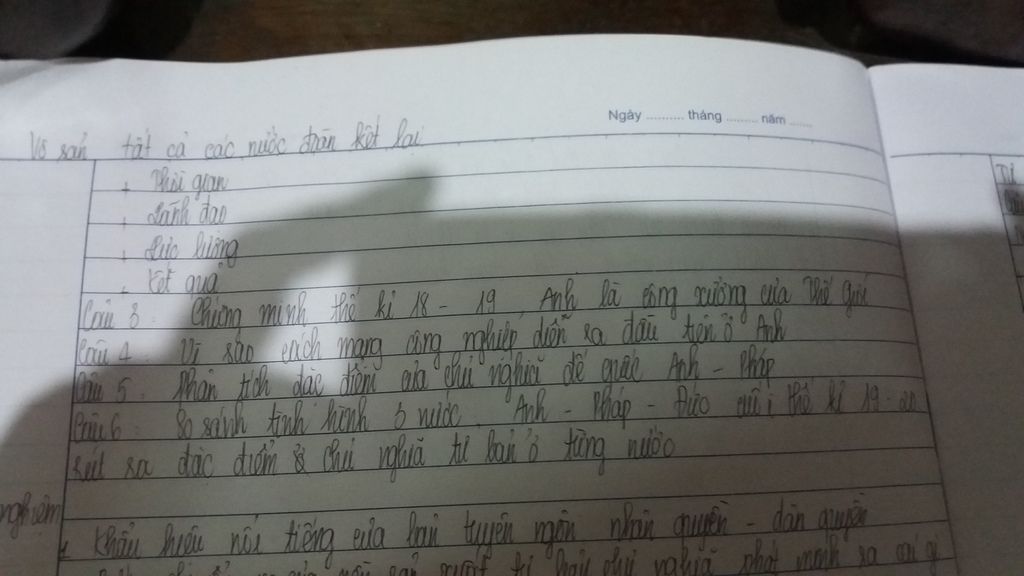 Ngày ........... tháng ......... năm ......
Vô sản tất cả các nước đoàn kết lại
+ Thời gian
+ Lãnh đạo
+ Lực lượng
+ Kết quả
Câu 3: Chứng minh thế kỉ 18 - 19 Anh là công xưởng của thế giới
Câu 4: Vì sao cách mạng công nghiệp diễn ra đầu tiên ở Anh
Câu 5: Phân tích đặc điểm của chủ nghĩa đế quốc Anh - Pháp
Câu 6: So sánh tình hình 3 nước Anh - Pháp - Đức cuối thế kỉ 19 - 20
rút ra đặc điểm chủ nghĩa tư bản ở từng nước
nghiệm
Khẩu hiệu nổi tiếng của bản tuyên ngôn nhân quyền - dân quyền
tư bản chủ nghĩa phát minh ra cái gì